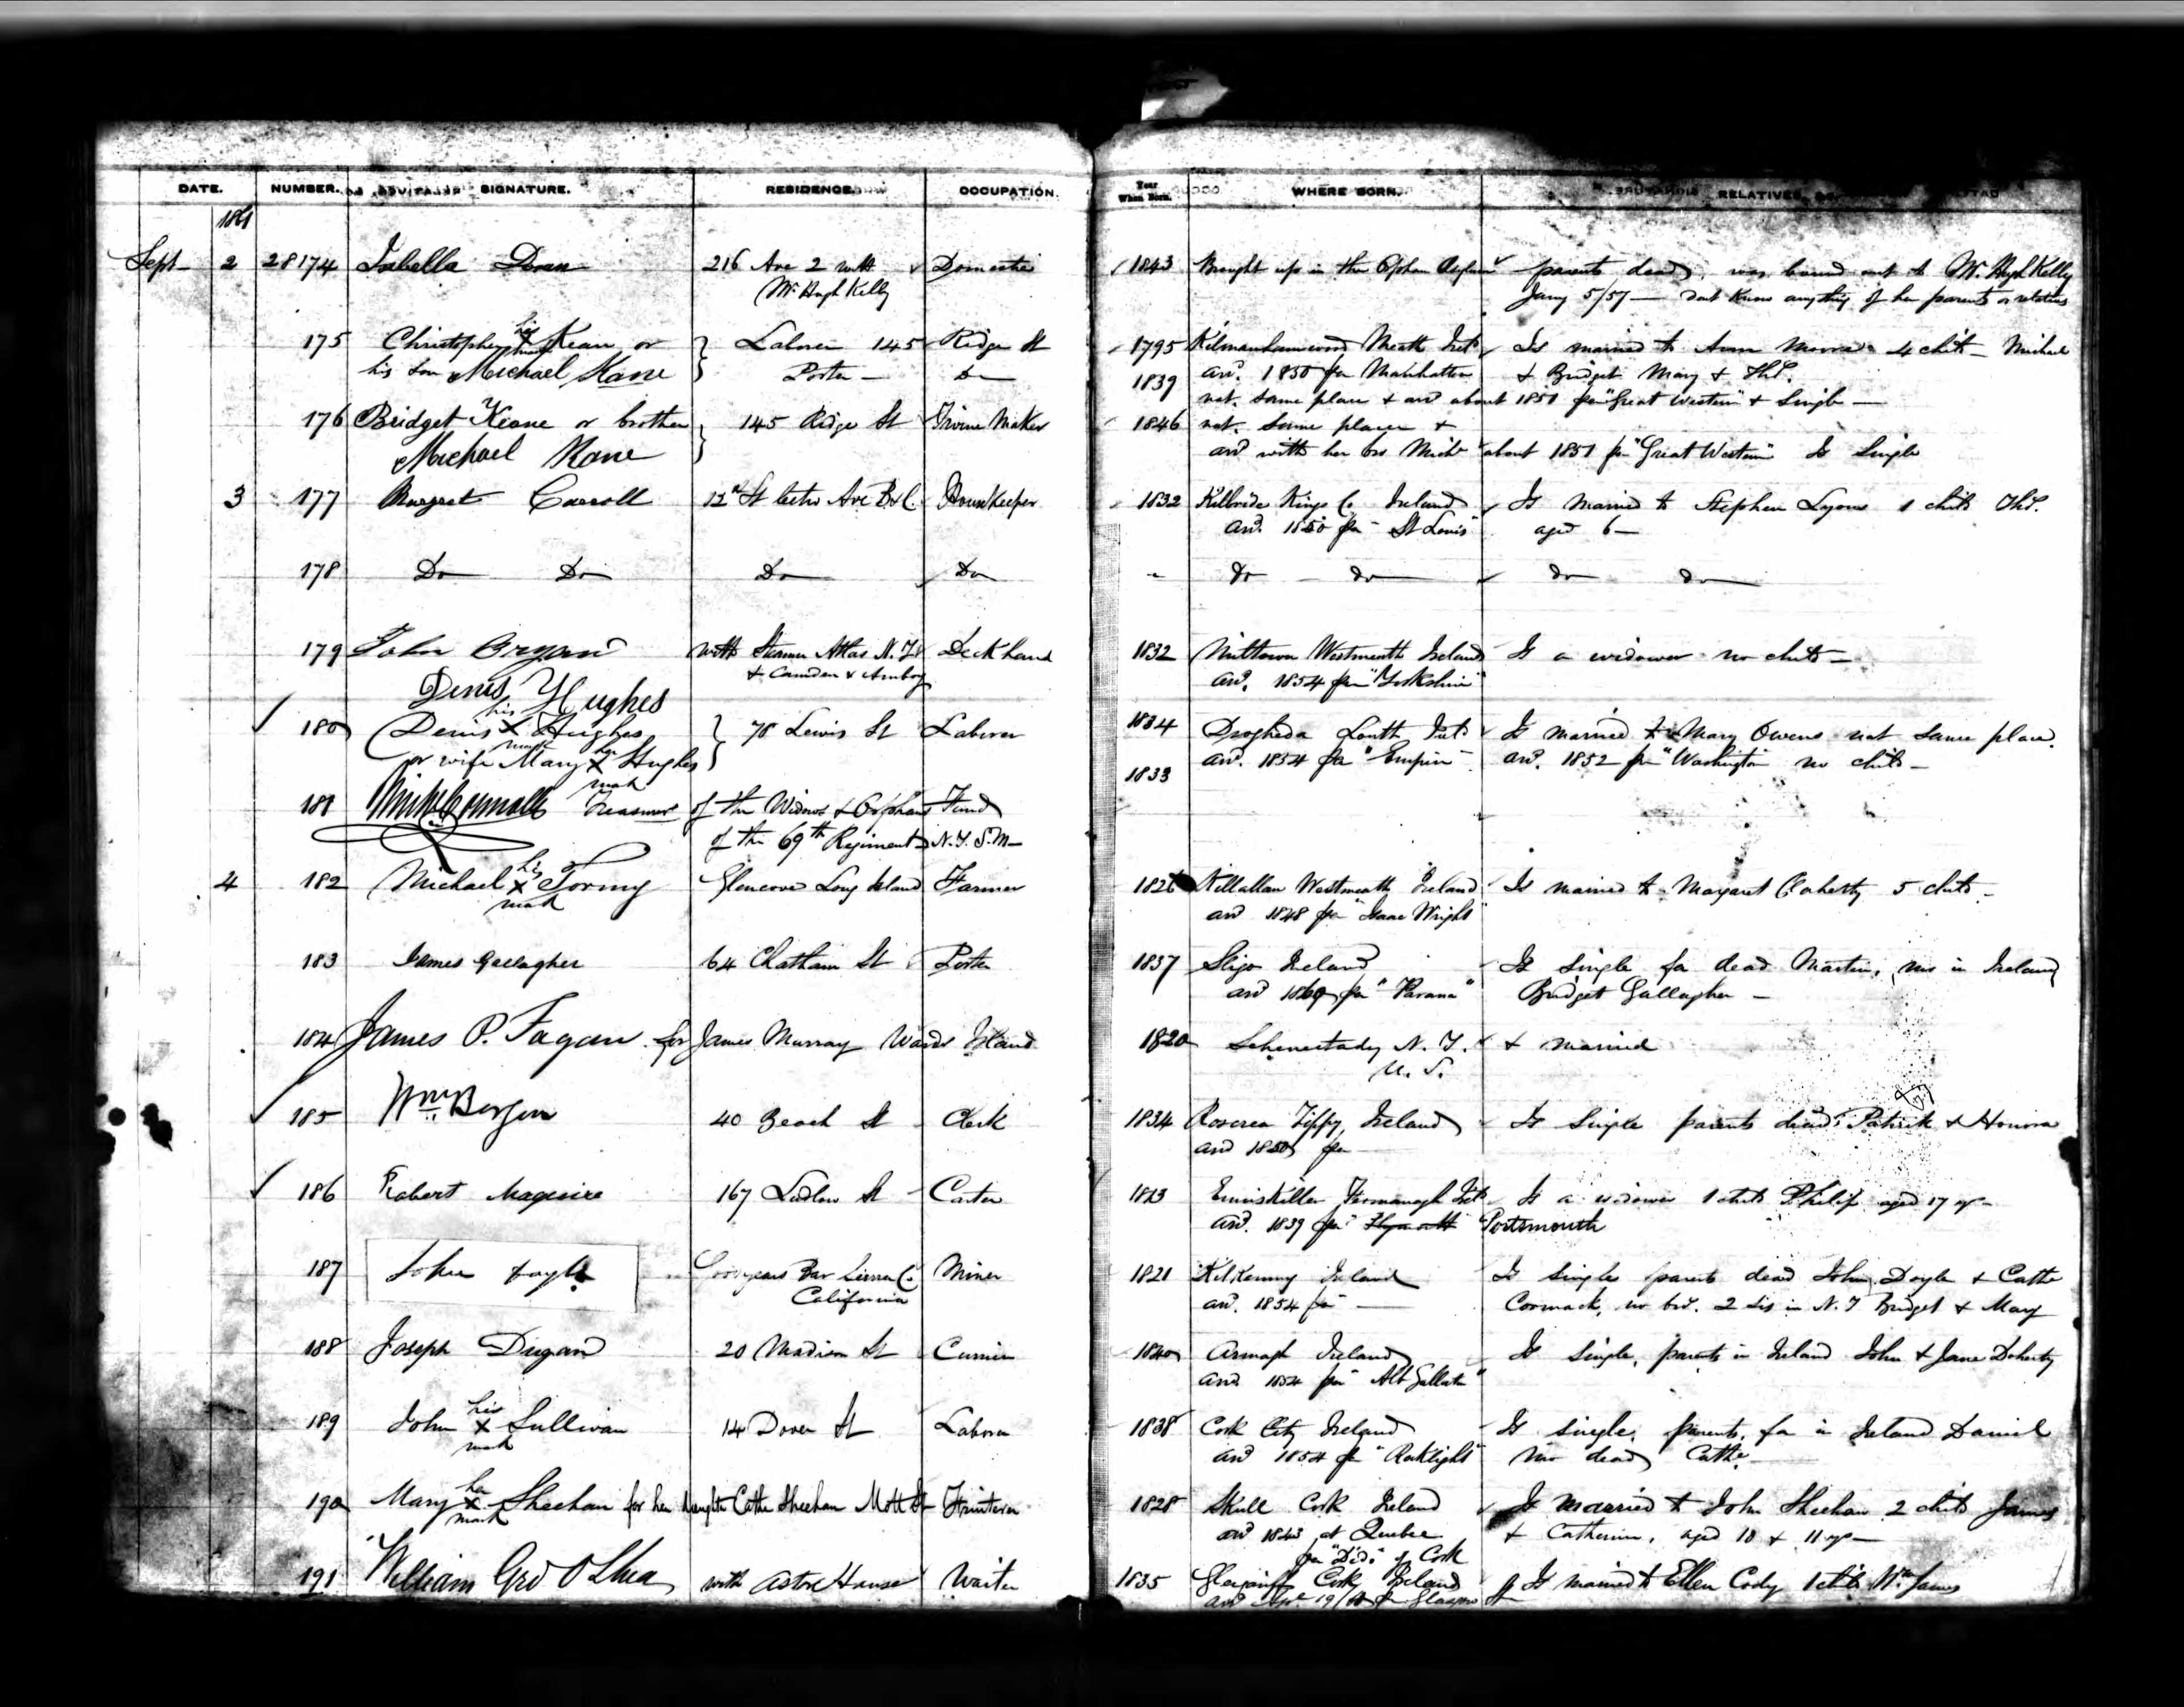 DATE. NUMBER. SIGNATURE. RESIDENCE. OCCUPATION. Year When Born. WHERE BORN. RELATIVES
1861
Sept 2 28174 Isabella Doran 216 Ave 2 with Domestic 1843 Brought up in the Orphan Asylum parents dead, was bound out to Mr Hugh Kelly
Mr Hugh Kelly Jany 5/57 — dont know anything of her parents or relatives
175 Christopher his mark Kean or Laborer 145 Ridge St 1795 Kilmanhamwood Meath Ireld Is married to Ann 4 chil Michael
his son Michael Kane Porter — Do 1839 arr. 1850 per Manhattan & Bridget Mary & Ths.
nat. same place & arr about 1851 per "Great Western" & Single —
176 Bridget Keane or brother 145 Ridge St Maker 1846 nat. same place &
Michael Kane arr with her bro Michl about 1851 per "Great Western" Is Single
3 177 Margaret Carroll 12th St betw Ave B & C. HouseKeeper 1832 Kilbride Kings Co Ireland Is married to Stephen Lyons 1 child Ths.
arr. 1850 per "St Louis" aged 6 —
178 Do Do Do Do - do do do do
179 John Bryan with Steamer Atlas N.Y. Deckhand 1832 Miltown Westmeath Ireland Is a widower no childn —
& Camden & Amboy arr. 1854 per "Yorkshire"
Denis Hughes
180 (Denis his X mark Hughes 78 Lewis St Laborer 1834 Drogheda Louth Ireld Is married to Mary Owens nat same place.
or wife Mary her X mark Hughes) 1833 arr. 1854 per "Empire" arr. 1852 per "Washington" no childn —
181 Treasurer of the Widows & Orphans Fund
of the 69th Regiment N.Y.S.M —
4 182 Michael his X mark Tormy Glencove Long Island Farmer 1826 Killallan Westmeath Ireland Is married to Margaret 5 childn —
arr 1848 per "Isaac Wright"
183 James Gallagher 64 Chatham St Porter 1837 Sligo Ireland Is Single fa dead Martin, mo in Ireland
arr 1860 per Bridget Gallagher —
184 James P. Fagan for James Murray Wards Island 1820 Schenectady N.Y. & married
U.S.
185 Wm Bergen 40 Beach St Clerk 1834 Roscrea Tippy, Ireland Is Single parents dead Patrick & Honora
arr 1850 per —
186 Robert Maguire 167 Ludlow St Carter 1813 Enniskillen Fermanagh Ireld Is a widower 1 child Philip aged 17 yr —
arr. 1839 per "Plymouth Portsmouth
187 John Doyle Goodyears Bar Sierra Co Miner 1821 Kilkenny Ireland Is Single parents dead John Doyle & Cathe
California arr. 1854 per — Cormack, no bro. 2 sis in N.Y Bridget & Mary
188 Joseph Dugan 20 Madison St Currier 1840 Armagh Ireland Is Single, parents in Ireland John & Jane Doherty
arr 1854 per "Alb Gallatin"
189 John his X mark Sullivan 14 Dover St Laborer 1838 Cork City Ireland Is single, parents, fa in Ireland Daniel
arr 1854 per mo dead Cathe. —
190 Mary her X mark Sheehan for her daughter Cathe Sheehan Mott St 1828 Skull Cork Ireland Is married to John Sheehan 2 childn James
arr 1843 at Quebec & Catherine, aged 18 & 11 yr —
per "Dido" of Cork
191 William Geo O'Shea with Astor House Waiter 1835 Glengariff Cork Ireland Is married to Ellen Cody 1 child Wm James
per Glasgow